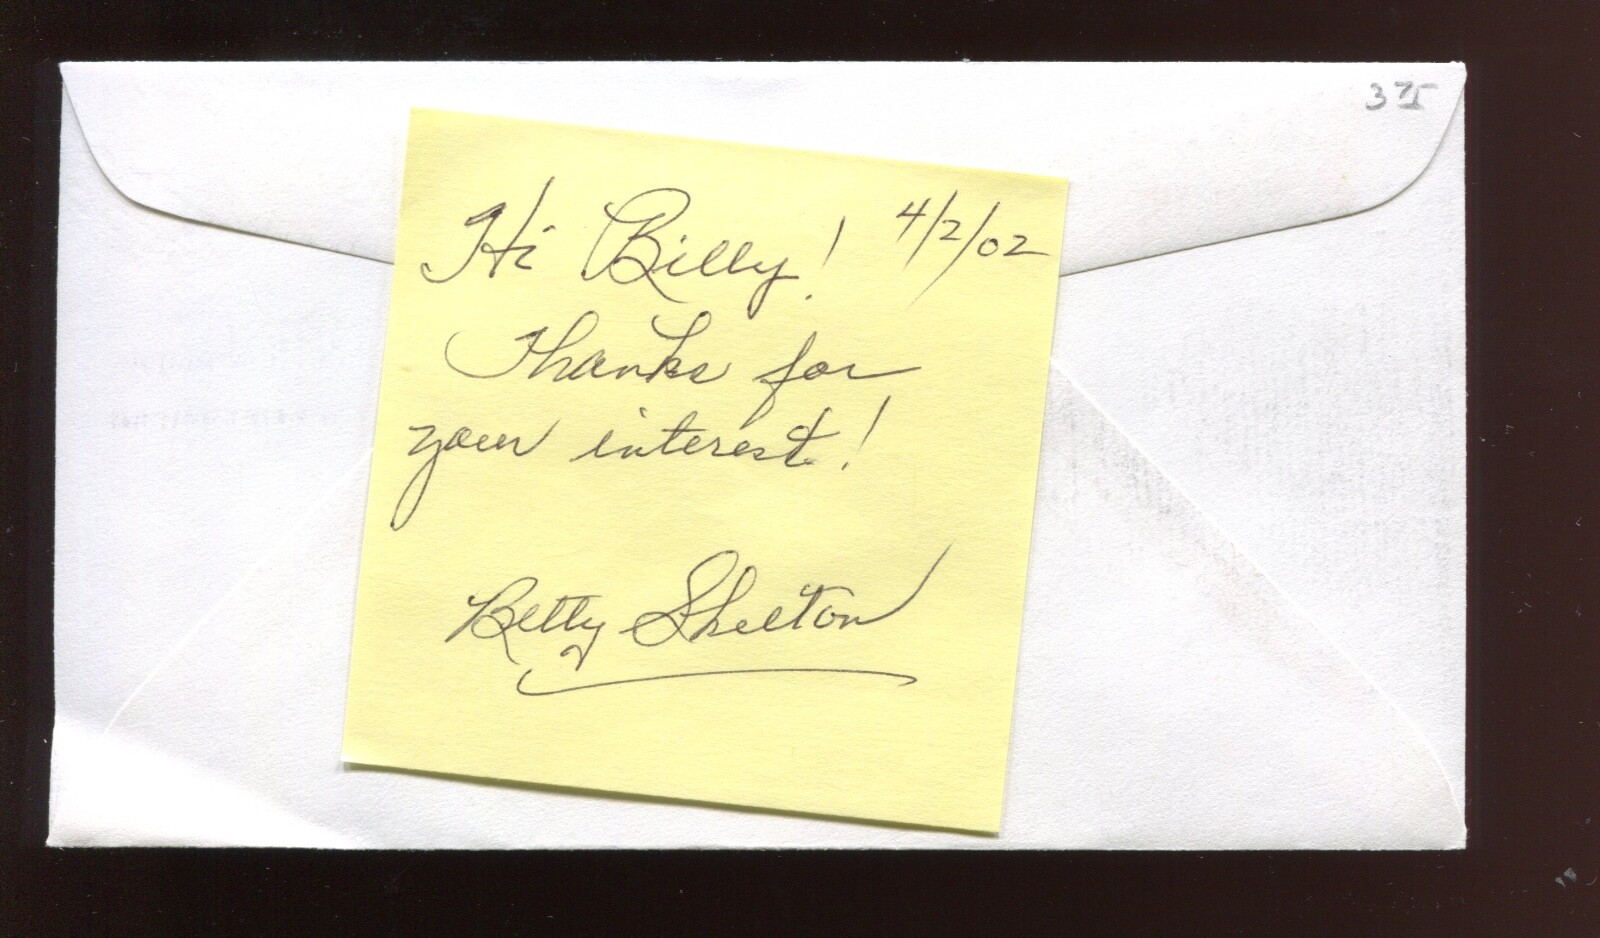 Hi Billy! 4/2/02
Thanks for
your interest!
Betty Skelton